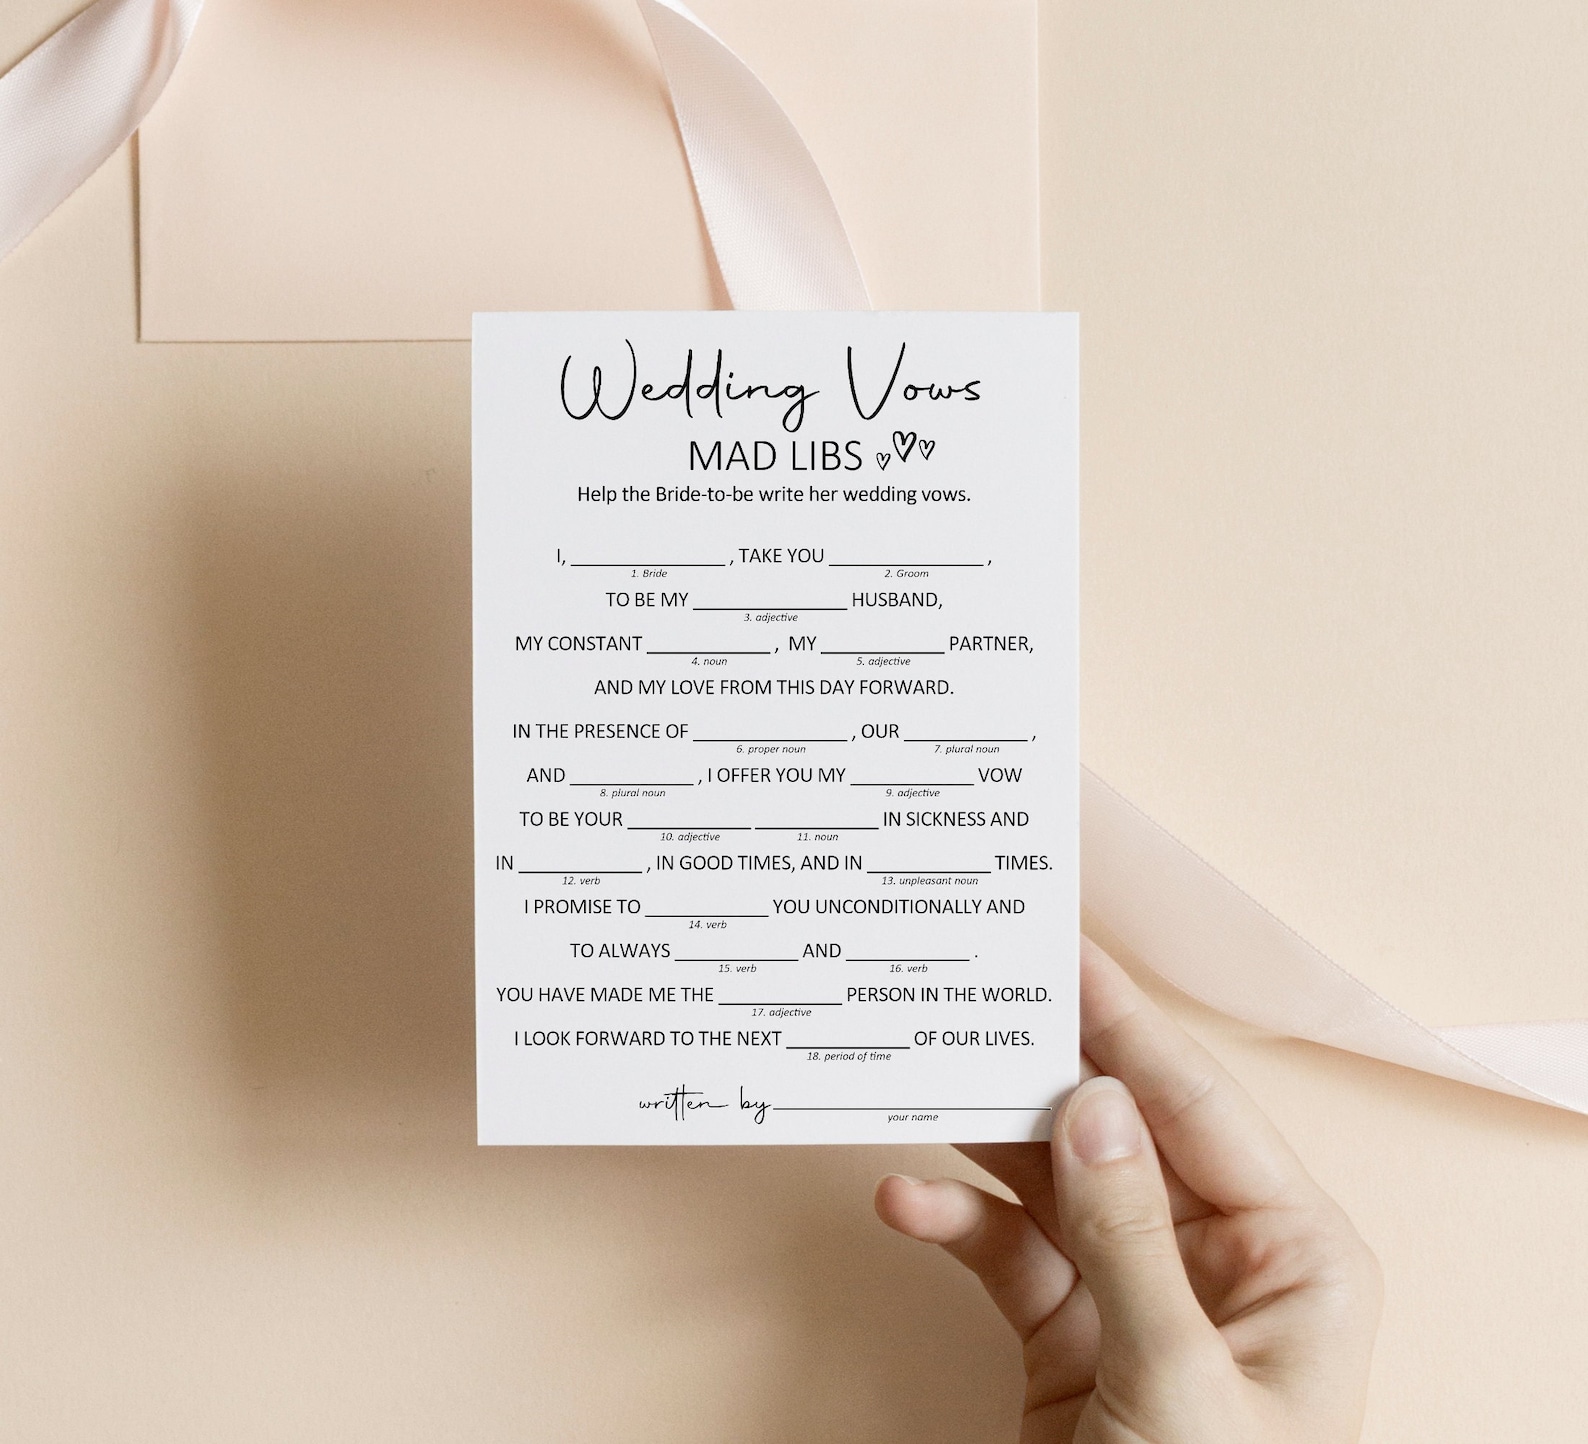 Wedding Vows
MAD LIBS
Help the Bride-to-be write her wedding vows.
I, ____________ , TAKE YOU ____________ ,
1. Bride 2. Groom
TO BE MY ____________ HUSBAND,
3. adjective
MY CONSTANT __________ , MY __________ PARTNER,
4. noun 5. adjective
AND MY LOVE FROM THIS DAY FORWARD.
IN THE PRESENCE OF ____________ , OUR __________ ,
6. proper noun 7. plural noun
AND __________ , I OFFER YOU MY __________ VOW
8. plural noun 9. adjective
TO BE YOUR __________ __________ IN SICKNESS AND
10. adjective 11. noun
IN __________ , IN GOOD TIMES, AND IN __________ TIMES.
12. verb 13. unpleasant noun
I PROMISE TO __________ YOU UNCONDITIONALLY AND
14. verb
TO ALWAYS __________ AND __________ .
15. verb 16. verb
YOU HAVE MADE ME THE __________ PERSON IN THE WORLD.
17. adjective
I LOOK FORWARD TO THE NEXT __________ OF OUR LIVES.
18. period of time
written by ______________________
your name